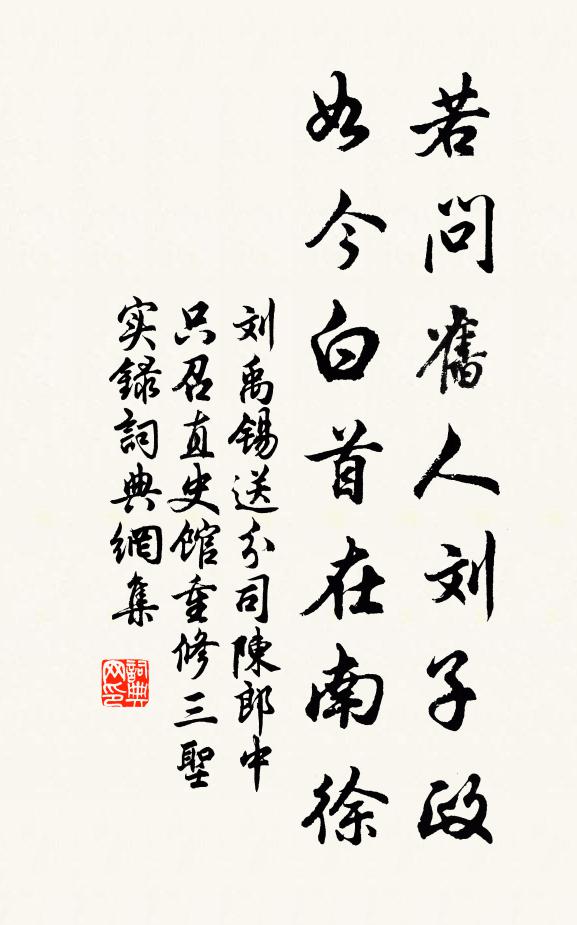 若問舊人刘子政
如今白首在南徐
刘禹錫送分司陳郎中
只召直史館重修三聖
实録詞典網集
詞典网印